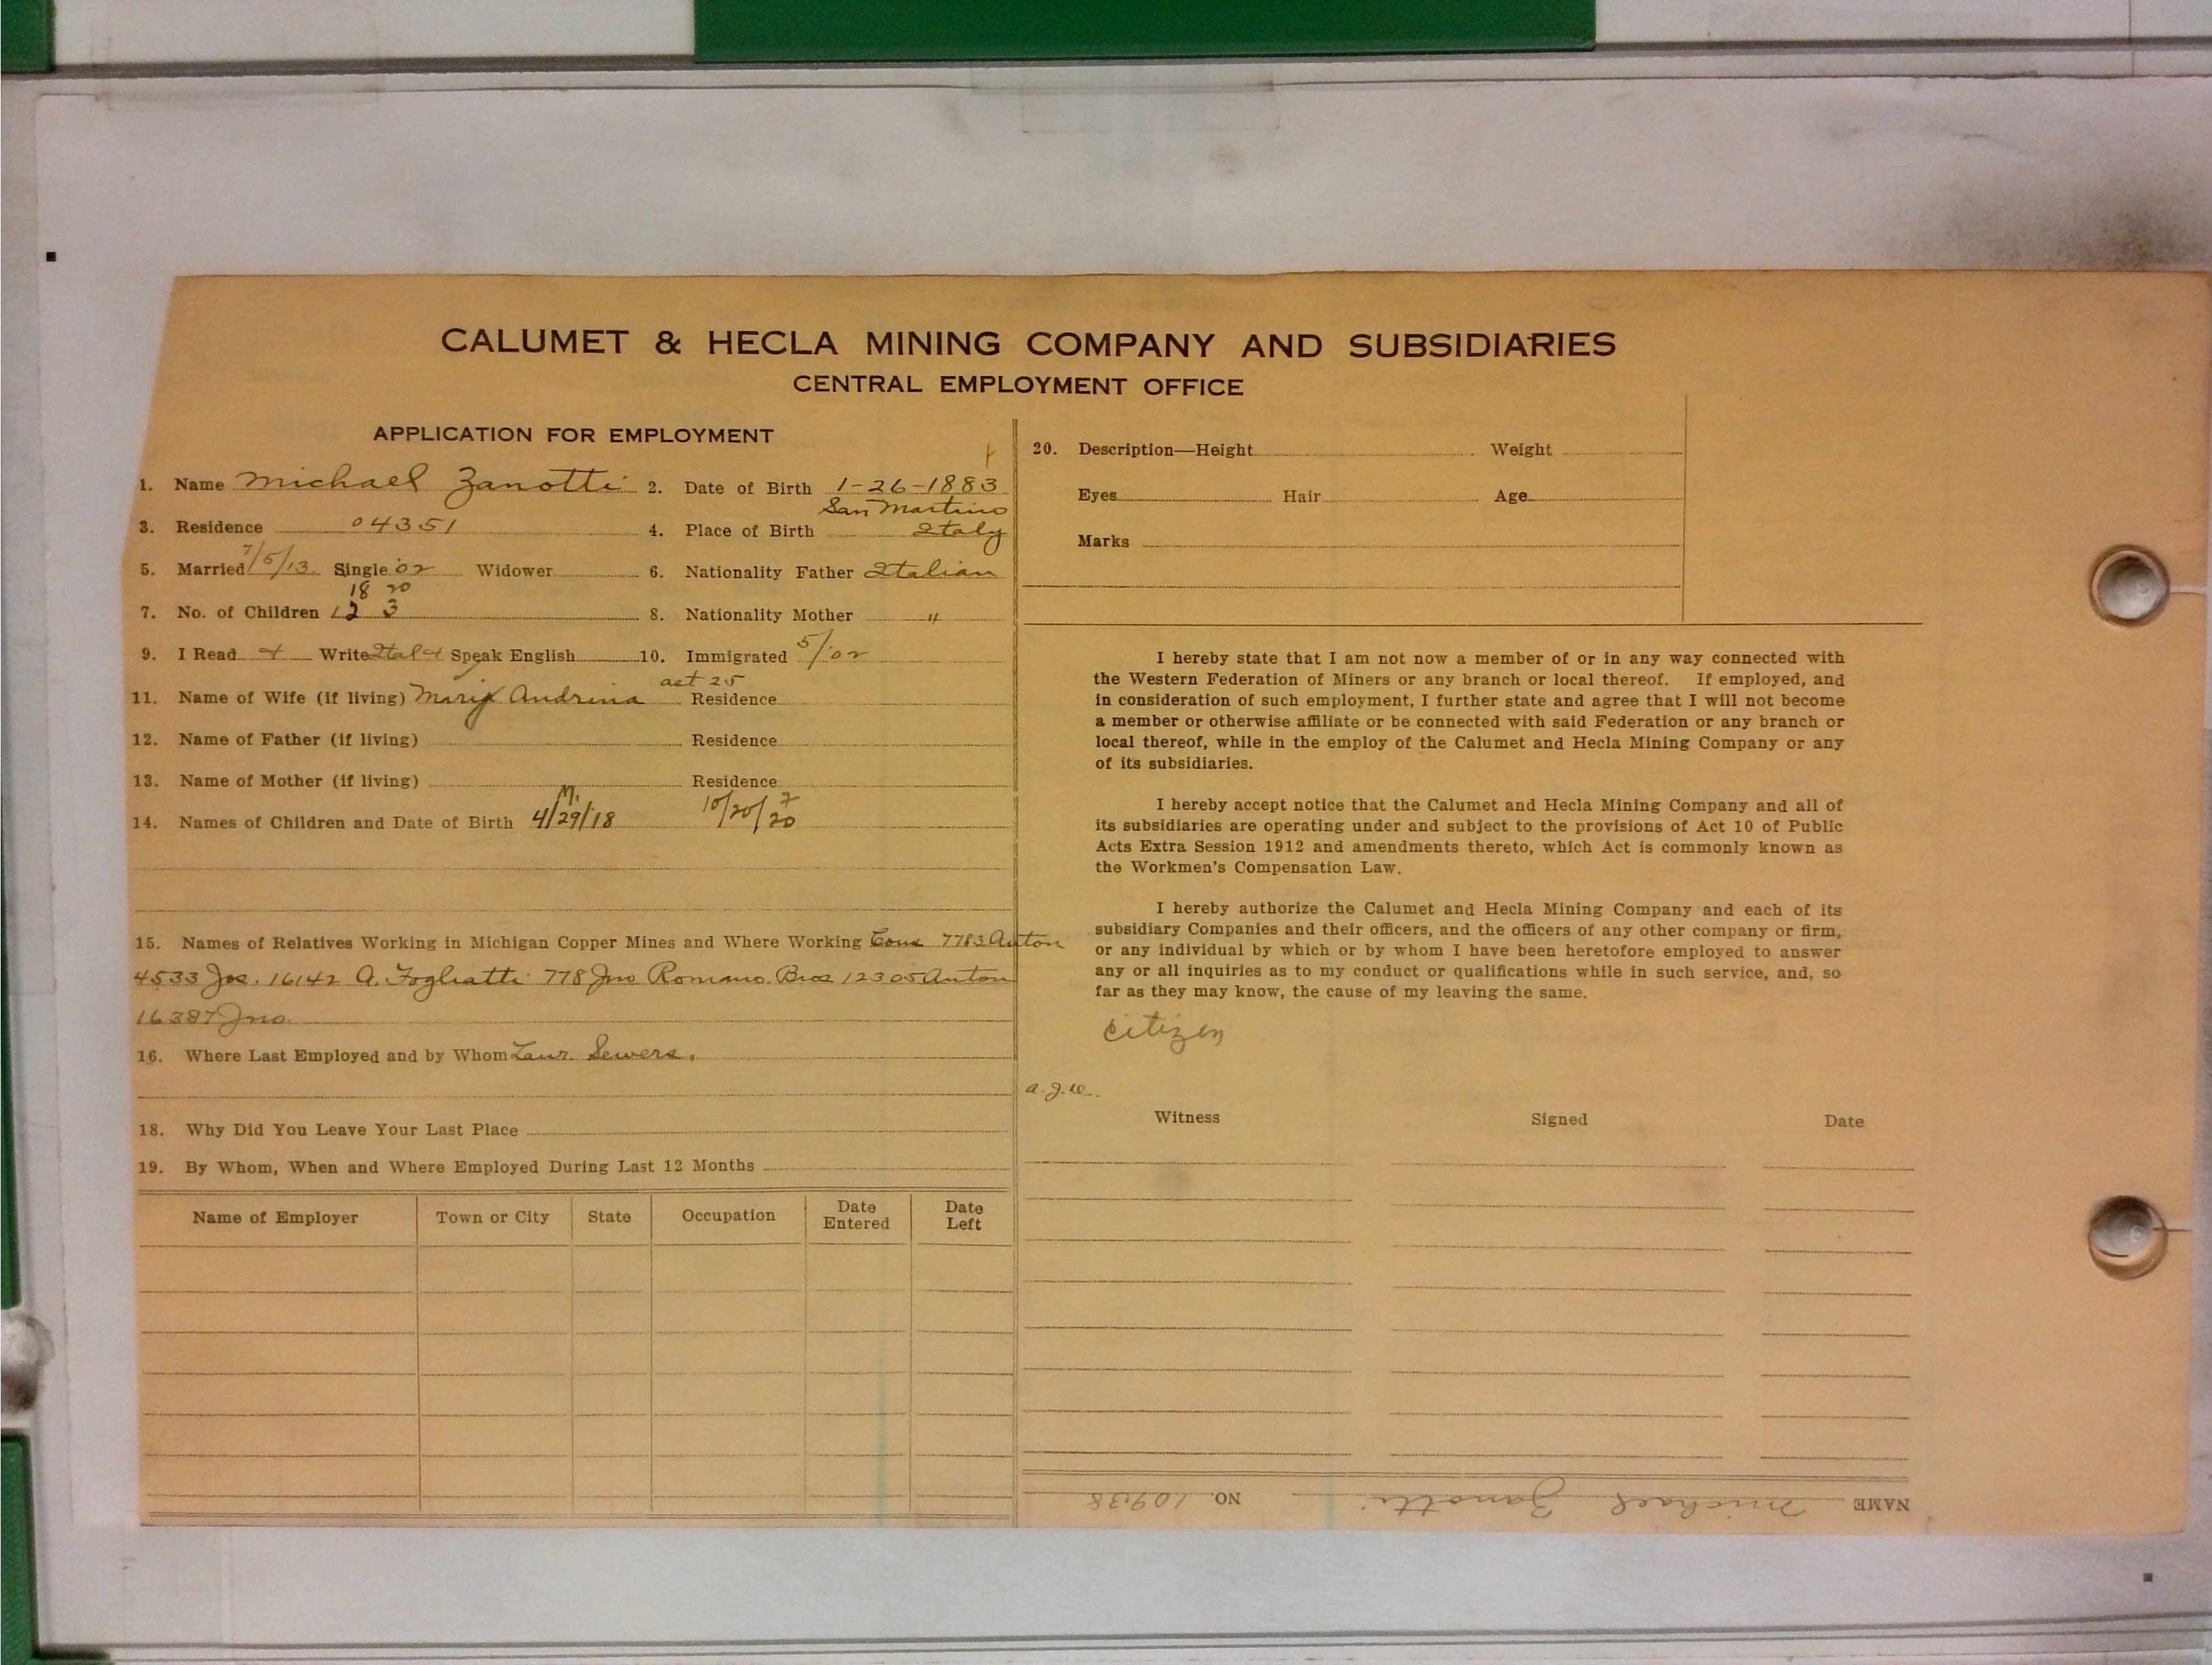 CALUMET & HECLA MINING COMPANY AND SUBSIDIARIES
CENTRAL EMPLOYMENT OFFICE
APPLICATION FOR EMPLOYMENT
1. Name Michael Zanotti 2. Date of Birth 1-26-1883
San Martino
3. Residence 04351 4. Place of Birth Italy
5. Married 7/5/13 Single 02 Widower 6. Nationality Father Italian
18 20
7. No. of Children 12 3 8. Nationality Mother "
9. I Read & Write Ital & Speak English 10. Immigrated 5/02
aet 25
11. Name of Wife (if living) Mary Andrina Residence
12. Name of Father (if living) Residence
13. Name of Mother (if living) Residence
M. 7
14. Names of Children and Date of Birth 4/29/18 10/20/20
15. Names of Relatives Working in Michigan Copper Mines and Where Working Cous 7783 Anton
4533 Jos. 16142 A. Fogliatti 778 Jno Romano. Bros 12305 Anton
16387 Jno.
16. Where Last Employed and by Whom Laur. Sewers.
18. Why Did You Leave Your Last Place
19. By Whom, When and Where Employed During Last 12 Months
Name of Employer Town or City State Occupation Date Entered Date Left
20. Description—Height Weight
Eyes Hair Age
Marks
I hereby state that I am not now a member of or in any way connected with
the Western Federation of Miners or any branch or local thereof. If employed, and
in consideration of such employment, I further state and agree that I will not become
a member or otherwise affiliate or be connected with said Federation or any branch or
local thereof, while in the employ of the Calumet and Hecla Mining Company or any
of its subsidiaries.
I hereby accept notice that the Calumet and Hecla Mining Company and all of
its subsidiaries are operating under and subject to the provisions of Act 10 of Public
Acts Extra Session 1912 and amendments thereto, which Act is commonly known as
the Workmen's Compensation Law.
I hereby authorize the Calumet and Hecla Mining Company and each of its
subsidiary Companies and their officers, and the officers of any other company or firm,
or any individual by which or by whom I have been heretofore employed to answer
any or all inquiries as to my conduct or qualifications while in such service, and, so
far as they may know, the cause of my leaving the same.
citizen
Witness Signed Date
NAME Michael Zanotti NO. 10938